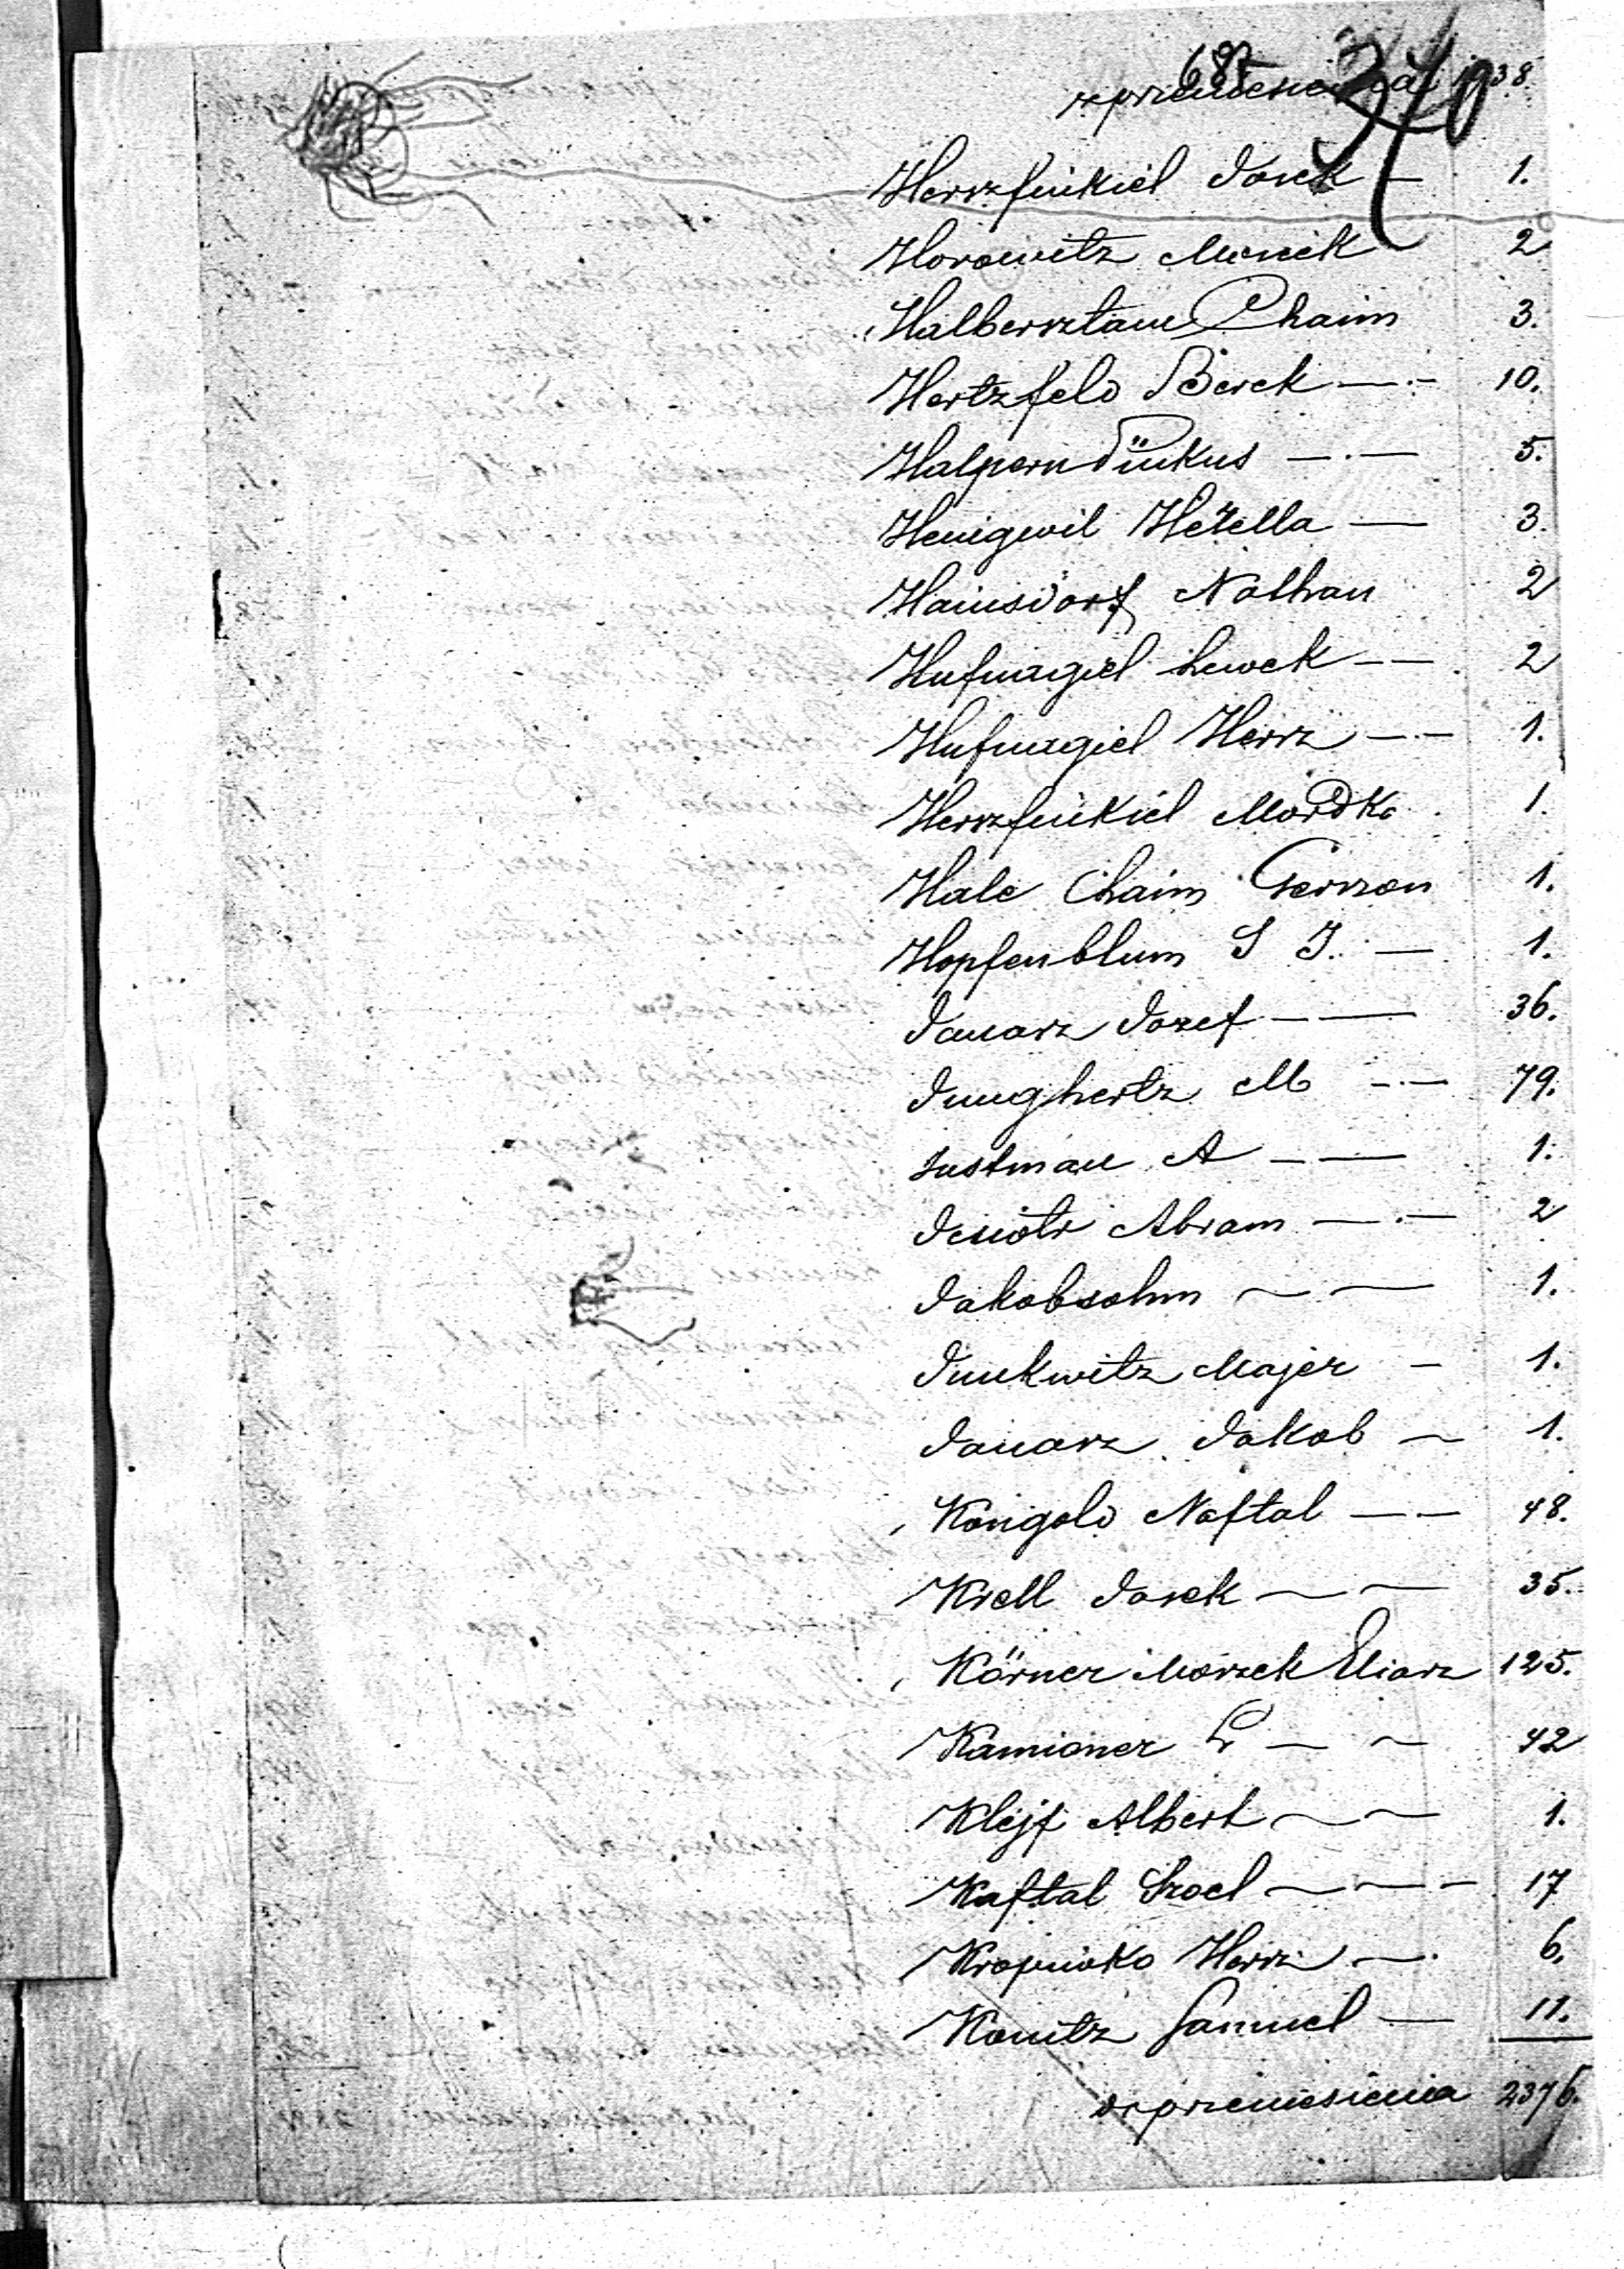 687 340
z przeniesienia 1938.
Herszfinkiel Josek — 1.
Horowitz Moniek 2
Halbersztam Chaim 3.
Hertzfeld Berek —.— 10.
Halpern Pinkus —.— 5.
Henigwil Hetella — 3.
Hainsdorf Nathan 2
Hufnagiel Lewek —— 2
Hufnagiel Hersz —.— 1.
Herszfinkiel Mordka 1.
Hale Chaim Gerszon 1.
Hopfenblum S J. — 1.
Janasz Jozef —— 36.
Junghertz M —.— 79.
Justman A —— 1.
Jenoir Abram —.— 2
Jakobsohn —— 1.
Junkwitz Majer — 1.
Janasz Jakob — 1.
Köngold Naftal —— 48.
Krell Josek —— 35.
Körner Moszek Eliasz 125.
Kamioner L —— 42
Klejf Albert —— 1.
Kaftal Sroel ——— 17
Kropiwko Hersz —. 6.
Konitz Samuel — 11.
do przeniesienia 2376.